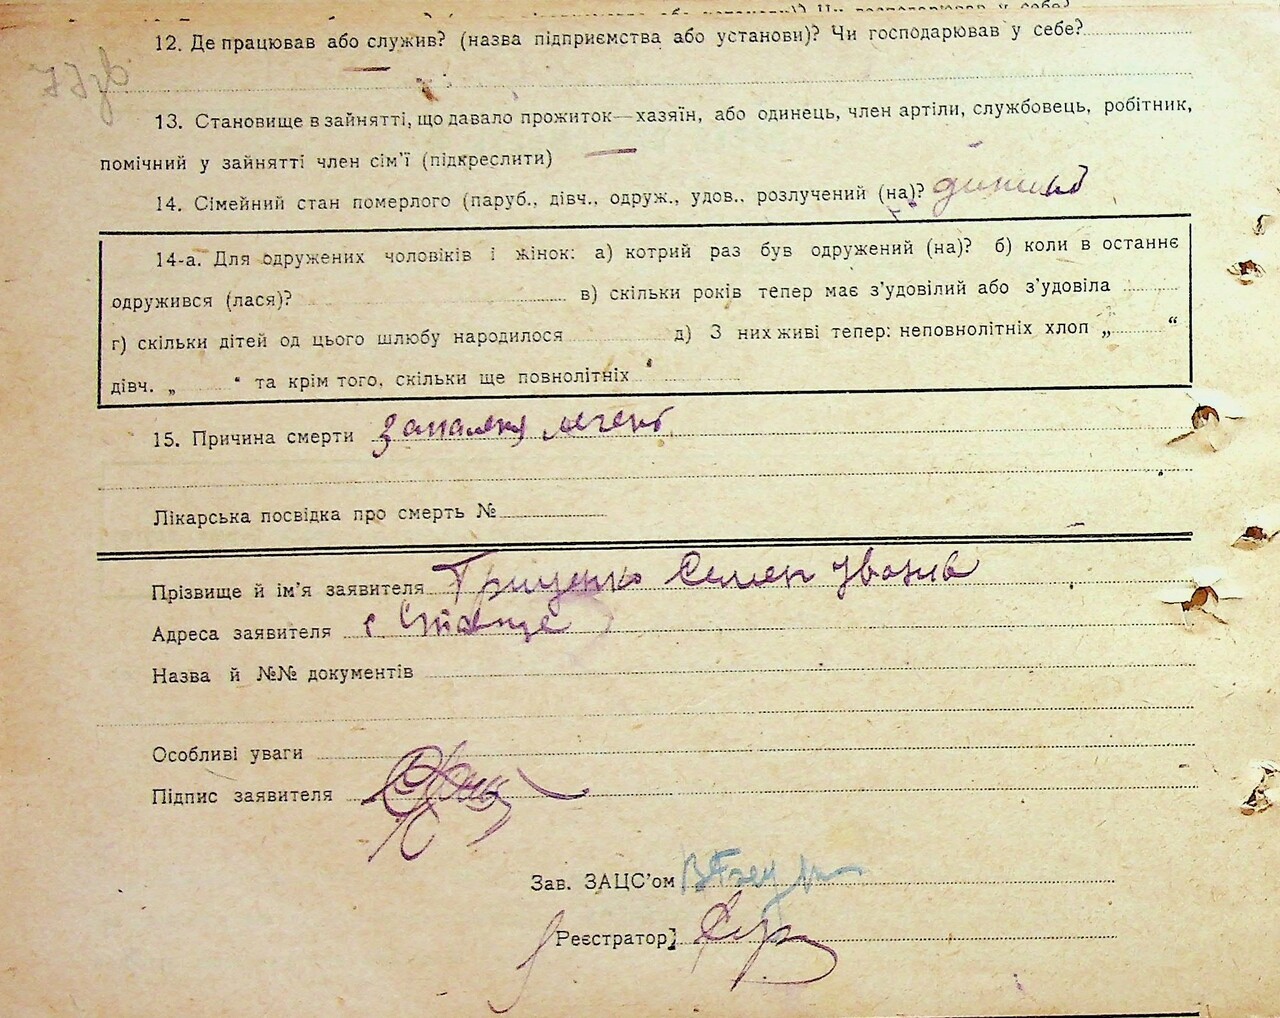 12. Де працював або служив? (назва підприємства або установи)? Чи господарював у себе?
13. Становище в зайнятті, що давало прожиток—хазяїн, або одинець, член артіли, службовець, робітник,
помічний у зайнятті член сім'ї (підкреслити)
14. Сімейний стан померлого (паруб., дівч., одруж., удов., розлучений (на)?
14-а. Для одружених чоловіків і жінок: а) котрий раз був одружений (на)? б) коли в останнє
одружився (лася)? в) скільки років тепер має з'удовілий або з'удовіла
г) скільки дітей од цього шлюбу народилося д) З них живі тепер: неповнолітніх хлоп „ “
дівч. „ “ та крім того, скільки ще повнолітніх
15. Причина смерти запалення легень
Лікарська посвідка про смерть №
Прізвище й ім'я заявителя Грищенко Семен Іванів
Адреса заявителя с
Назва й №№ документів
Особливі уваги
Підпис заявителя
Зав. ЗАЦС'ом
Реєстратор